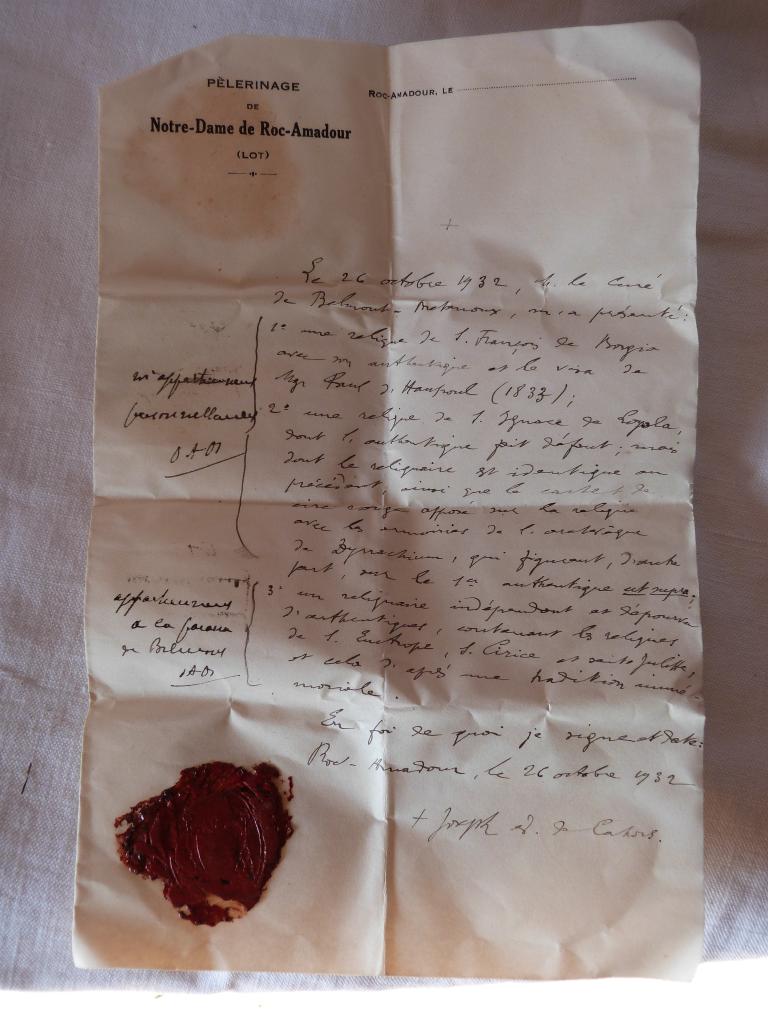 PÈLERINAGE
DE
Notre-Dame de Roc-Amadour
(LOT)
ROC-AMADOUR, LE
+
Le 26 octobre 1932, M. le Curé
de Belmont-Bretenoux, m'a présenté:
1º une relique de S. François de Borgia
avec son authentique et le visa de
Mgr Paul d'Hautpoul (1833);
m'appartenant
personnellement
2º une relique de S. Ignace de Loyola,
dont l'authentique fait défaut; mais
dont le reliquaire est identique au
précédent, ainsi que le cachet de
cire rouge apposé sur la relique
avec les armoiries de l'archevêque
de Dyrrachium, qui figurent, d'autre
part, sur le 1er authentique ut supra;
appartenant
à la paroisse
de Belmont
3º un reliquaire indépendant et dépourvu
d'authentiques, contenant les reliques
de S. Eutrope, S. Cirice et sainte Julitte,
et cela d'après une tradition immé-
moriale.
En foi de quoi je signe et date:
Roc-Amadour, le 26 octobre 1932
+ Joseph év. de Cahors.